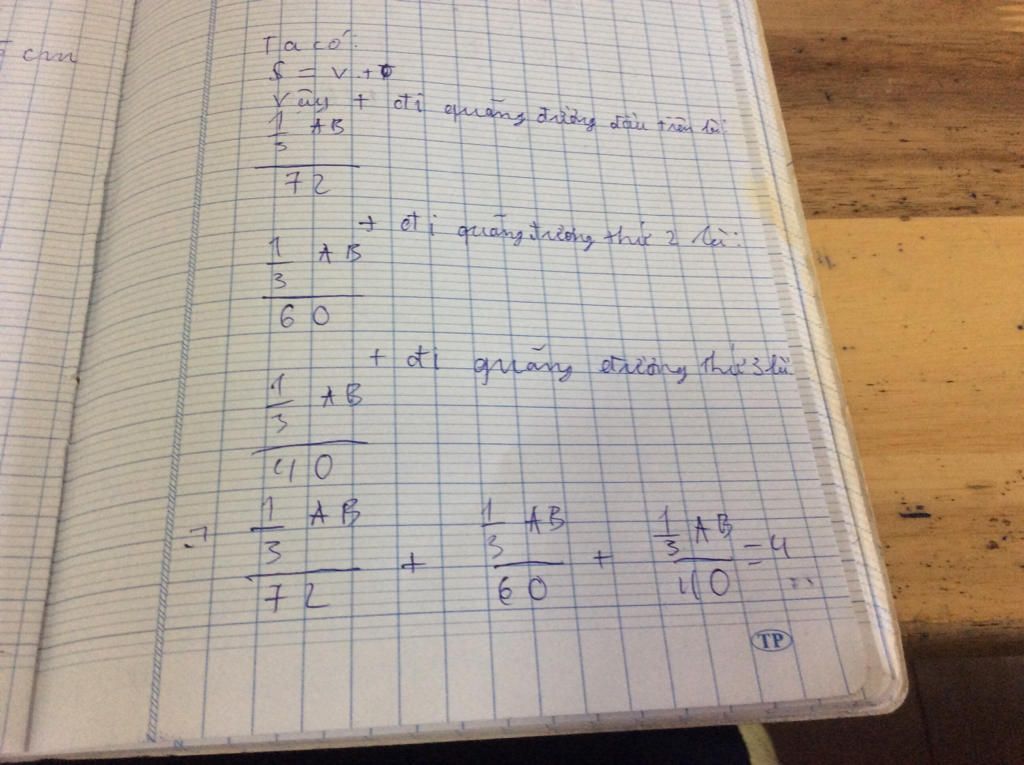 cm
Ta có:
S = v . t
Vậy t đi quãng đường đầu tiên là:
1/3 AB
72
t đi quãng đường thứ 2 là:
1/3 AB
60
t đi quãng đường thứ 3 là
1/3 AB
40
=> 1/3 AB / 72 + 1/3 AB / 60 + 1/3 AB / 40 = 4
TP